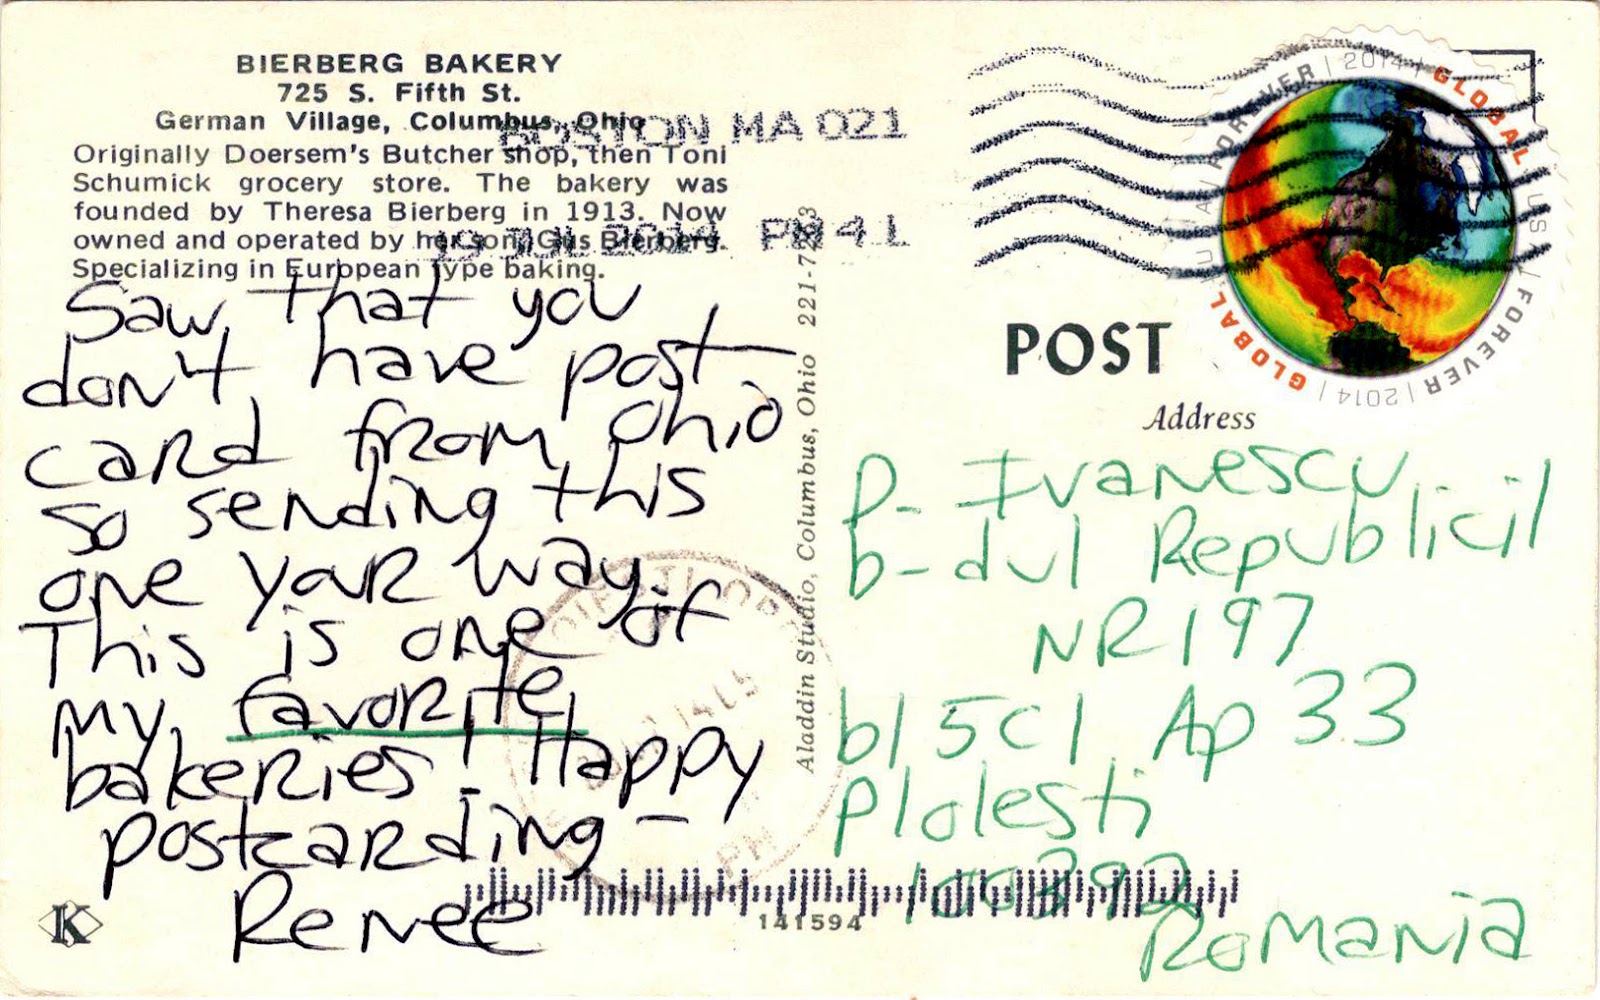 BIERBERG BAKERY
725 S. Fifth St.
German Village, Columbus, Ohio
Originally Doersem's Butcher shop, then Toni
Schumick grocery store. The bakery was
founded by Theresa Bierberg in 1913. Now
owned and operated by her son, Gus Bierberg.
Specializing in European type baking.
Saw that you
don't have post-
card from Ohio
so sending this
one your way.
This is one of
my favorite
bakeries! Happy
postcarding –
Renee
K
BOSTON MA 021
19 JUL 2014 PM 4 L
Aladdin Studio, Columbus, Ohio 221-7
GLOBAL | FOREVER | 2014 | GLOBAL | USA | FOREVER | 2014 |
POST
Address
P- Ivanescu
b-dul Republicil
NR 197
bl 5c1 Ap 33
Plolesti
100392
Romania
141594
PM